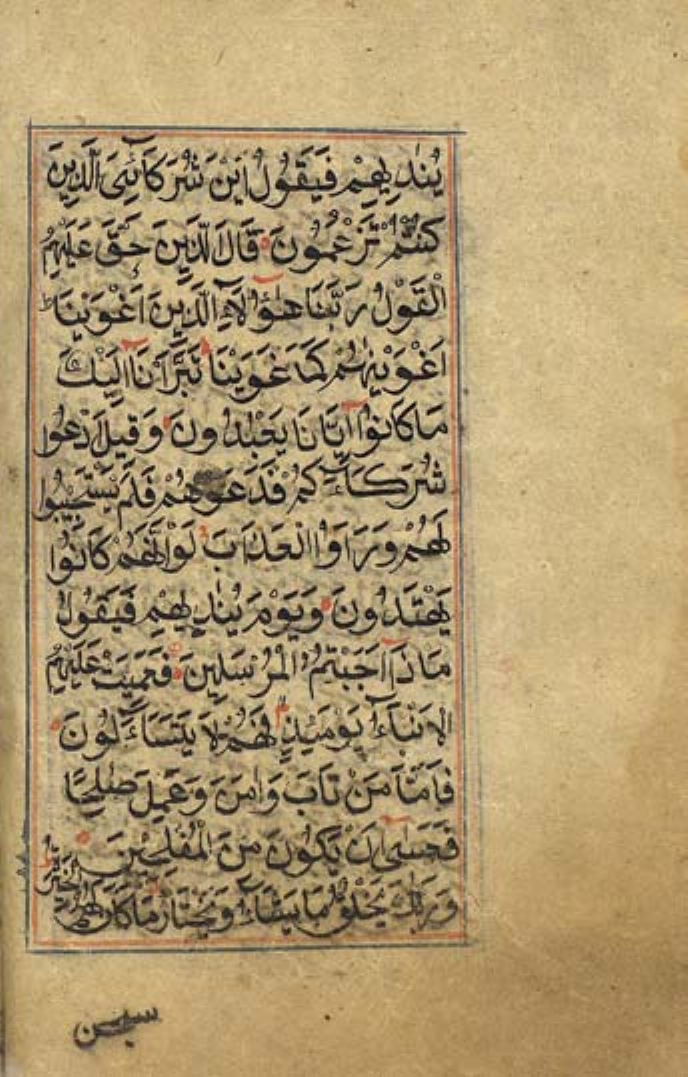 يُنَادِيهِمْ فَيَقُولُ اَيْنَ شُرَكَآئِىَ الَّذِيْنَ
كُنْتُمْ تَزْعُمُوْنَ قَالَ الَّذِيْنَ حَقَّ عَلَيْهِمُ
الْقَوْلُ رَبَّنَا هٰٓؤُلَآءِ الَّذِيْنَ اَغْوَيْنَا
اَغْوَيْنٰهُمْ كَمَا غَوَيْنَا تَبَرَّاْنَآ اِلَيْكَ
مَا كَانُوْٓا اِيَّانَا يَعْبُدُوْنَ وَقِيْلَ ادْعُوْا
شُرَكَآءَكُمْ فَدَعَوْهُمْ فَلَمْ يَسْتَجِيْبُوْا
لَهُمْ وَرَاَوُا الْعَذَابَ لَوْ اَنَّهُمْ كَانُوْا
يَهْتَدُوْنَ وَيَوْمَ يُنَادِيْهِمْ فَيَقُوْلُ
مَاذَآ اَجَبْتُمُ الْمُرْسَلِيْنَ فَعَمِيَتْ عَلَيْهِمُ
الْاَنْبَآءُ يَوْمَئِذٍ فَهُمْ لَا يَتَسَآءَلُوْنَ
فَاَمَّا مَنْ تَابَ وَاٰمَنَ وَعَمِلَ صٰلِحًا
فَعَسٰٓى اَنْ يَّكُوْنَ مِنَ الْمُفْلِحِيْنَ
وَرَبُّكَ يَخْلُقُ مَا يَشَآءُ وَيَخْتَارُ مَا كَانَ لَهُمُ الْخِيَرَةُ
سبحن